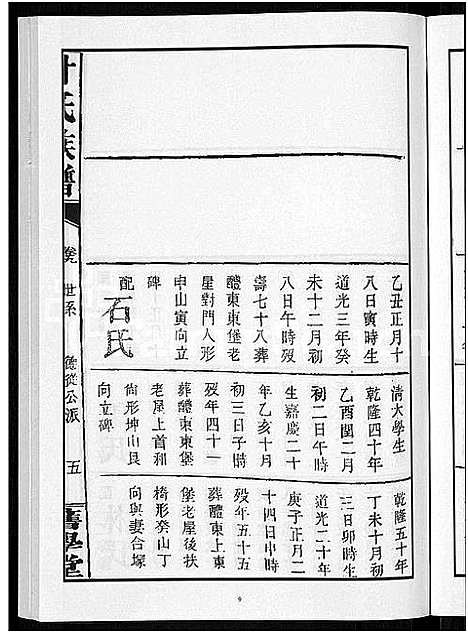 乙丑正月十
八日寅時生
道光三年癸
未十二月初
八日午時歿
壽七十八葬
醴東東堡老
星對門人形
申山寅向立
碑
配石氏
清大學生
乾隆四十年
乙酉閏二月
初二日午時
生嘉慶二十
年乙亥十月
初三日子時
歿年四十一
葬醴東東堡
老屋上首和
尚形坤山艮
向立碑
乾隆五十年
丁未十月初
三日卯時生
道光二十年
庚子正月二
十四日申時
歿年五十五
葬醴東上東
堡老屋後扶
椅形癸山丁
向與妻合塚
氏族譜
世系
從公派
五
學堂
9